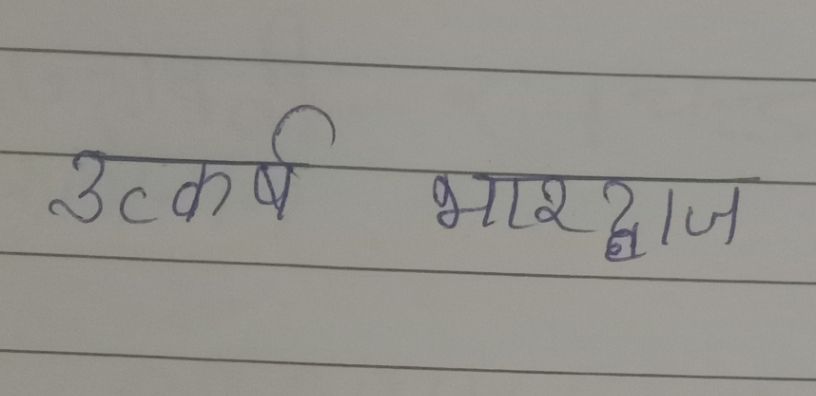 उत्कर्ष भारद्वाज